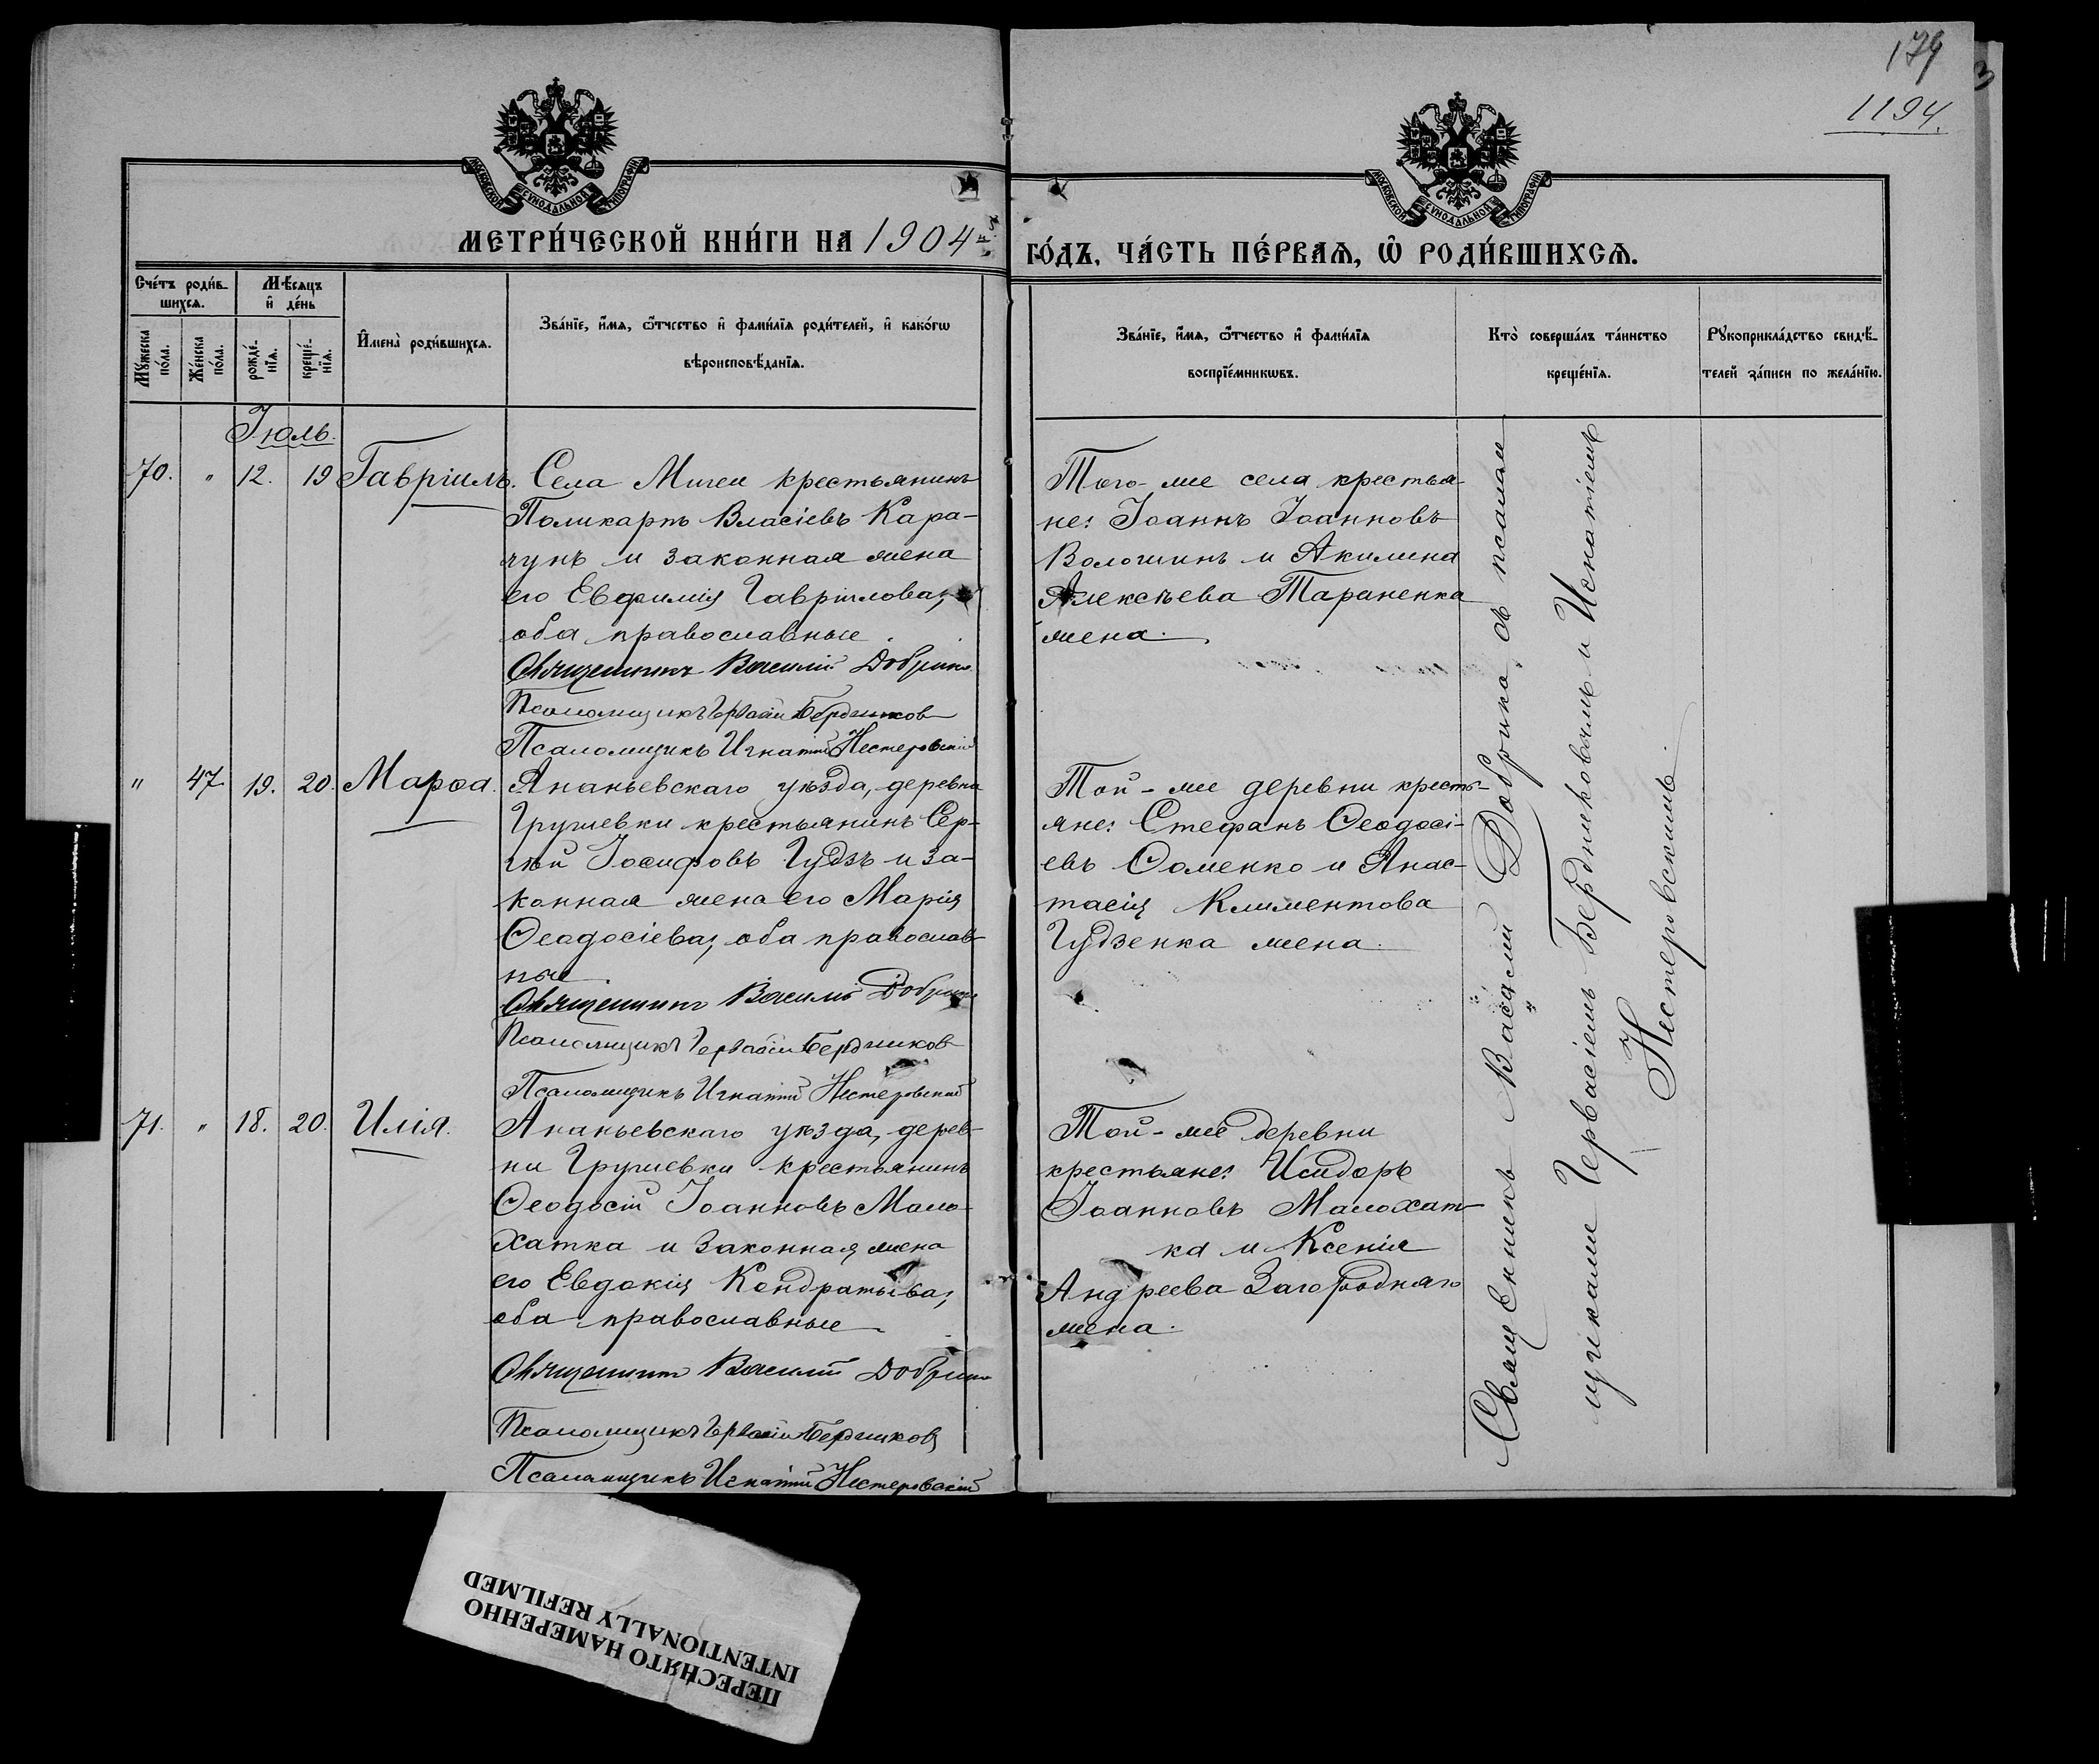 179
1194.
МОСКОВСКОЙ СУНОДАЛЬНОЙ ТИПОГРАФІИ
МОСКОВСКОЙ СУНОДАЛЬНОЙ ТИПОГРАФІИ
МЕТРИ́ЧЕСКОЙ КНИ́ГИ НА 1904й
ГО́ДЪ, ЧА́СТЬ ПЕ́РВАѦ, Ѡ РОДИ́ВШИХСѦ.
Сче́тъ роди́в-
шихсѧ.
Мѣ́сѧцъ
и҆ де́нь
Мꙋ́жеска по́ла.
Же́нска по́ла.
рожде́-
нїѧ.
креще́-
нїѧ.
И҆мена̀ роди́вшихсѧ.
Зва́нїе, и҆́мѧ, ѻ҆́тчество и҆ фами́лїѧ роди́телей, и҆ како́гѡ
вѣроисповѣ́данїѧ.
Зва́нїе, и҆́мѧ, ѻ҆́тчество и҆ фами́лїѧ
воспрїе́мникѡвъ.
Кто̀ соверша́лъ та́инство
креще́нїѧ.
Рꙋкоприкла́дство свидѣ́-
телей за́писи по жела́нїю.
Іюль.
70. " 12. 19 Гавріилъ.
Села Мигеи крестьянинъ
Поликарпъ Власіевъ Кара-
чунъ и законная жена
его Евфимія Гавріилова,
оба православные.
Священникъ Василій Добрин
Псаломщикъ Гервасій Бердников
Псаломщикъ Игнатій Нестеровскій
Того-же села крестья-
не: Іоаннъ Іоанновъ
Волошинъ и Акилина
Алексѣева Тараненка
жена.
" 47. 19. 20. Марѳа.
Ананьевскаго уѣзда, деревни
Грушевки крестьянинъ Сер-
гѣй Іосифовъ Гудзъ и за-
конная жена его Марія
Ѳеодосіева, оба православ-
ные
Священникъ Василій Добрин
Псаломщикъ Гервасій Бердников
Псаломщикъ Игнатій Нестеровскій
Той-же деревни кресть-
яне: Стефанъ Ѳеодосі-
евъ Соменко и Анас-
тасія Климентова
Гудзенка жена.
71. " 18. 20. Илія.
Ананьевскаго уѣзда, дерев-
ни Грушевки крестьянинъ
Ѳеодосій Іоанновъ Мало-
хатка и законная жена
его Евдокія Кондратьева,
оба православные
Священникъ Василій Добрин
Псаломщикъ Гервасій Бердников
Псаломщикъ Игнатій Нестеровскій
Той-же деревни
крестьяне: Исидоръ
Іоанновъ Малохат-
ка и Ксенія
Андреева Загороднаго
жена.
Священникъ Василій Добрина съ псалом
щиками Гервасіемъ Бердниковымъ и Игнатіемъ
Нестеровскимъ.
ПЕРЕСНЯТО НАМЕРЕННО
INTENTIONALLY REFILMED